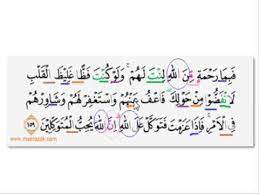 فَبِمَا رَحْمَةٍ مِّنَ اللّٰهِ لِنْتَ لَهُمْ ۚ وَلَوْ كُنْتَ فَظًّا غَلِيْظَ الْقَلْبِ
لَانْفَضُّوْا مِنْ حَوْلِكَ ۖ فَاعْفُ عَنْهُمْ وَاسْتَغْفِرْ لَهُمْ وَشَاوِرْهُمْ
فِى الْاَمْرِ ۚ فَاِذَا عَزَمْتَ فَتَوَكَّلْ عَلَى اللّٰهِ ۗ اِنَّ اللّٰهَ يُحِبُّ الْمُتَوَكِّلِيْنَ ١٥٩